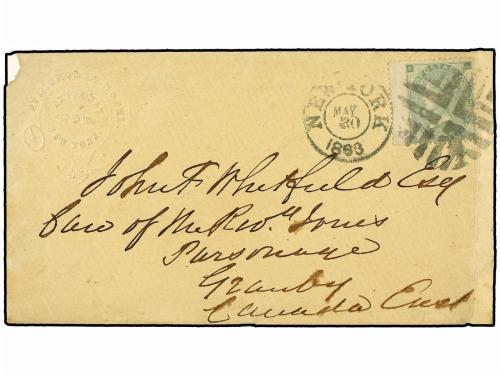 NEW YORK
MAY
20
1863
POSTAGE
John F Whitfield Esq
Care of Mr Rev.d Jones
Parsonage
Granby
Canada East